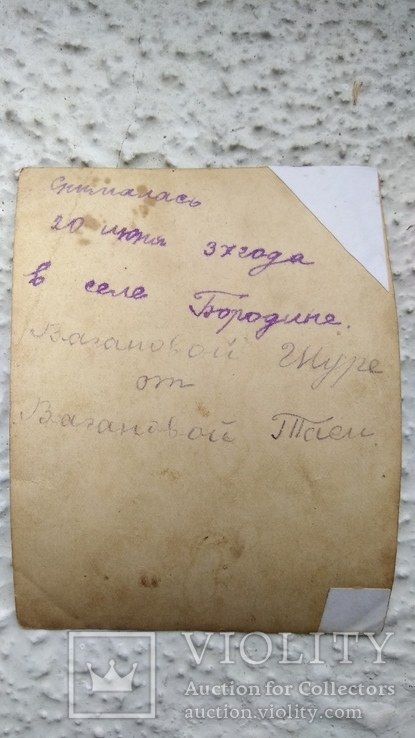 Снималась
20 июня 37 года
в селе Бородине.
Вагановой Шуре
от
Вагановой Таси.
VIOLITY
Auction for Collectors
auction.violity.com